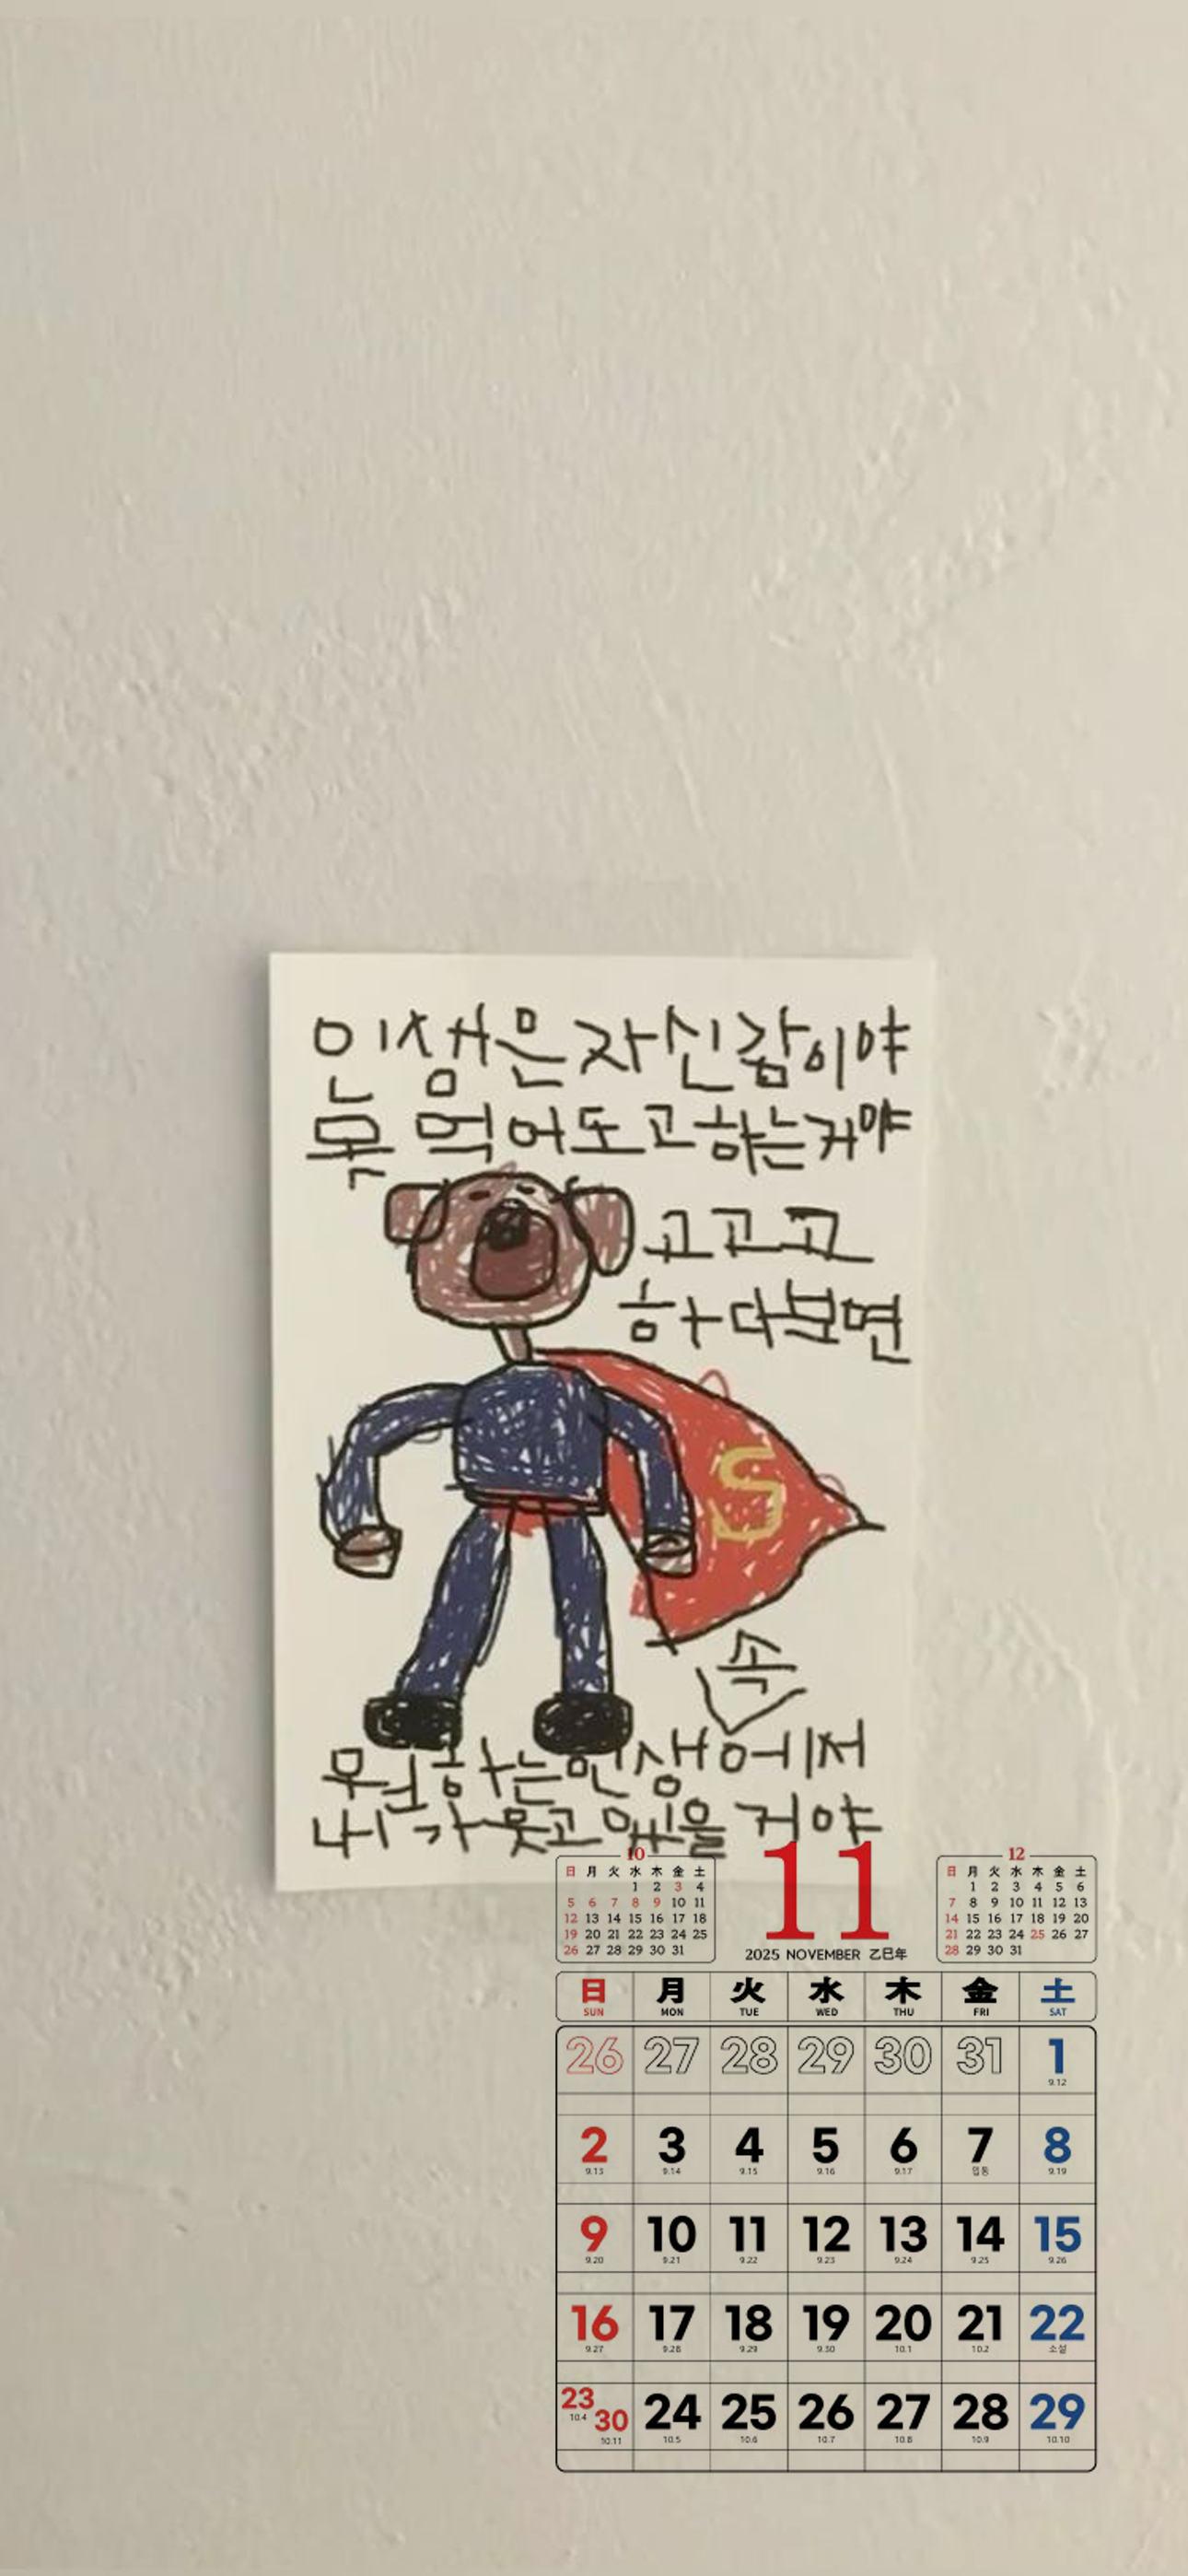 인생은 자신감이야
목 먹어도 고 하는 거야
고고고
하다보면
속
원하는 인생에서
내가 웃고 있을 거야
10
日 月 火 水 木 金 土
1 2 3 4
5 6 7 8 9 10 11
12 13 14 15 16 17 18
19 20 21 22 23 24 25
26 27 28 29 30 31
11
2025 NOVEMBER 乙巳年
12
日 月 火 水 木 金 土
1 2 3 4 5 6
7 8 9 10 11 12 13
14 15 16 17 18 19 20
21 22 23 24 25 26 27
28 29 30 31
日 月 火 水 木 金 土
SUN MON TUE WED THU FRI SAT
26 27 28 29 30 31 1
9.12
2 3 4 5 6 7 8
9.13 9.14 9.15 9.16 9.17 입동 9.19
9 10 11 12 13 14 15
9.20 9.21 9.22 9.23 9.24 9.25 9.26
16 17 18 19 20 21 22
9.27 9.28 9.29 9.30 10.1 10.2 소설
23 30 24 25 26 27 28 29
10.4 10.11 10.5 10.6 10.7 10.8 10.9 10.10
S